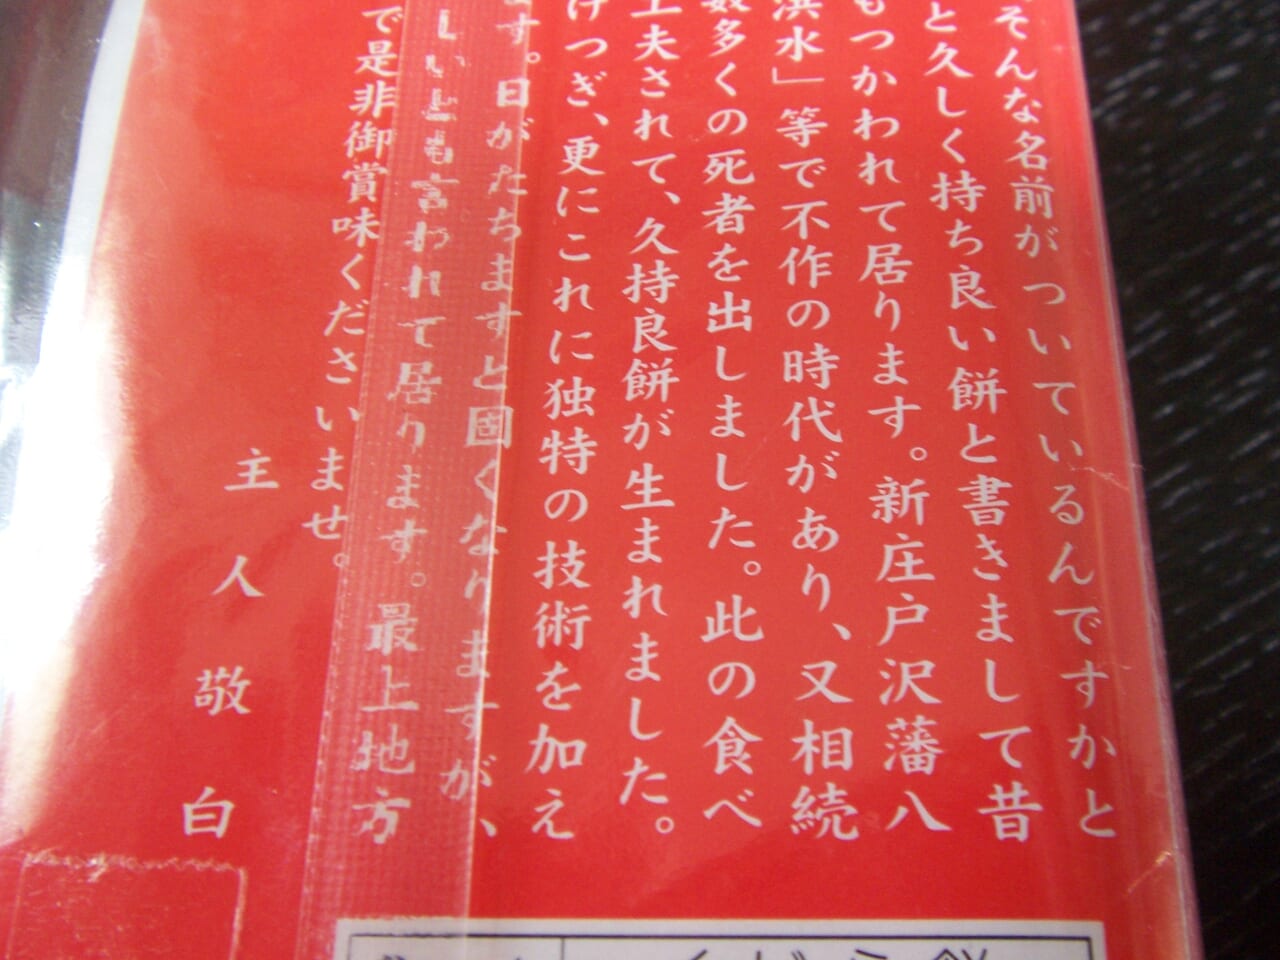 そんな名前がついているんですかと
と久しく持ち良い餅と書きまして昔
もつかわれて居ります。新庄戸沢藩八
浜水」等で不作の時代があり、又相続
数多くの死者を出しました。此の食べ
工夫されて、久持良餅が生まれました。
けつぎ、更にこれに独特の技術を加え
ます。日がたちますと固くなりますが、
しいとも言われて居ります。最上地方
で是非御賞味くださいませ。
主人敬白